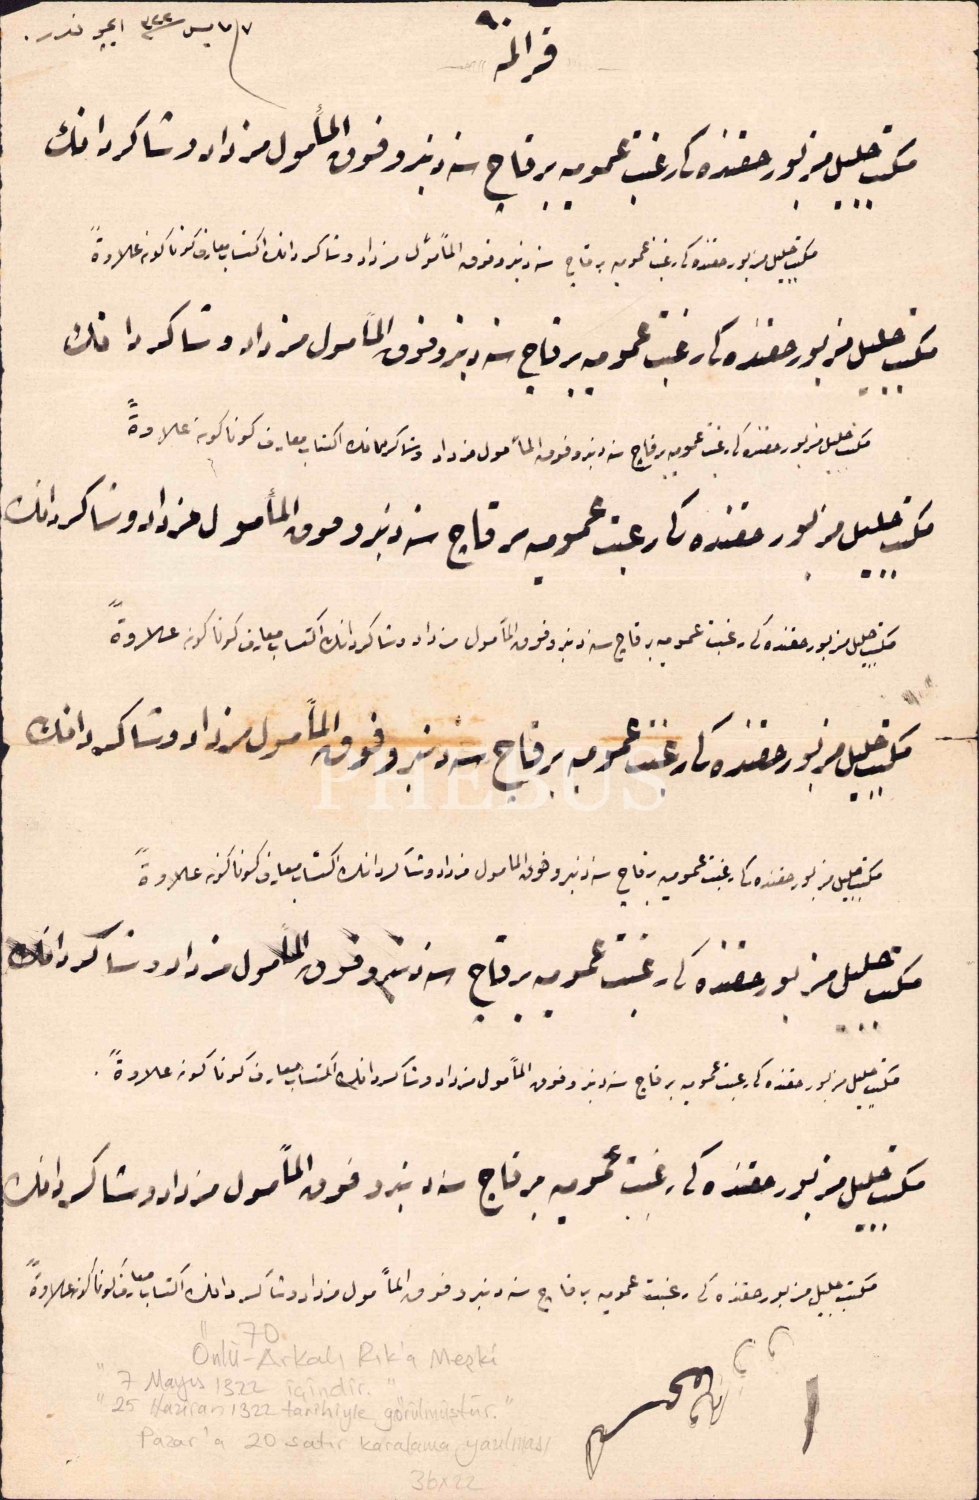 ٧ مايس ٣٢٢ ايچوندر.
قرالمه
مكتب جليل مزبور حقنده كی رغبت عمومیه بر قاچ سنه دنبرو فوق المأمول مزداد و شاكردانك
مكتب جليل مزبور حقنده كی رغبت عمومیه بر قاچ سنه دنبرو فوق المأمول مزداد و شاكردانك اكتساب معارف كوناكونه علاوةً
مكتب جليل مزبور حقنده كی رغبت عمومیه بر قاچ سنه دنبرو فوق المأمول مزداد و شاكردانك
مكتب جليل مزبور حقنده كی رغبت عمومیه بر قاچ سنه دنبرو فوق المأمول مزداد و شاكردانك اكتساب معارف كوناكونه علاوةً
مكتب جليل مزبور حقنده كی رغبت عمومیه بر قاچ سنه دنبرو فوق المأمول مزداد و شاكردانك
مكتب جليل مزبور حقنده كی رغبت عمومیه بر قاچ سنه دنبرو فوق المأمول مزداد و شاكردانك اكتساب معارف كوناكونه علاوةً
مكتب جليل مزبور حقنده كی رغبت عمومیه بر قاچ سنه دنبرو فوق المأمول مزداد و شاكردانك
PHEBUS
مكتب جليل مزبور حقنده كی رغبت عمومیه بر قاچ سنه دنبرو فوق المأمول مزداد و شاكردانك اكتساب معارف كوناكونه علاوةً
مكتب جليل مزبور حقنده كی رغبت عمومیه بر قاچ سنه دنبرو فوق المأمول مزداد و شاكردانك
مكتب جليل مزبور حقنده كی رغبت عمومیه بر قاچ سنه دنبرو فوق المأمول مزداد و شاكردانك اكتساب معارف كوناكونه علاوةً.
مكتب جليل مزبور حقنده كی رغبت عمومیه بر قاچ سنه دنبرو فوق المأمول مزداد و شاكردانك
مكتب جليل مزبور حقنده كی رغبت عمومیه بر قاچ سنه دنبرو فوق المأمول مزداد و شاكردانك اكتساب معارف كوناكونه علاوةً
70
Önlü-Arkalı Rık'a Meşki
"7 Mayıs 1322 içindir."
"25 Haziran 1322 tarihiyle görülmüştür."
Pazar'a 20 satır karalama yazılması
36x22